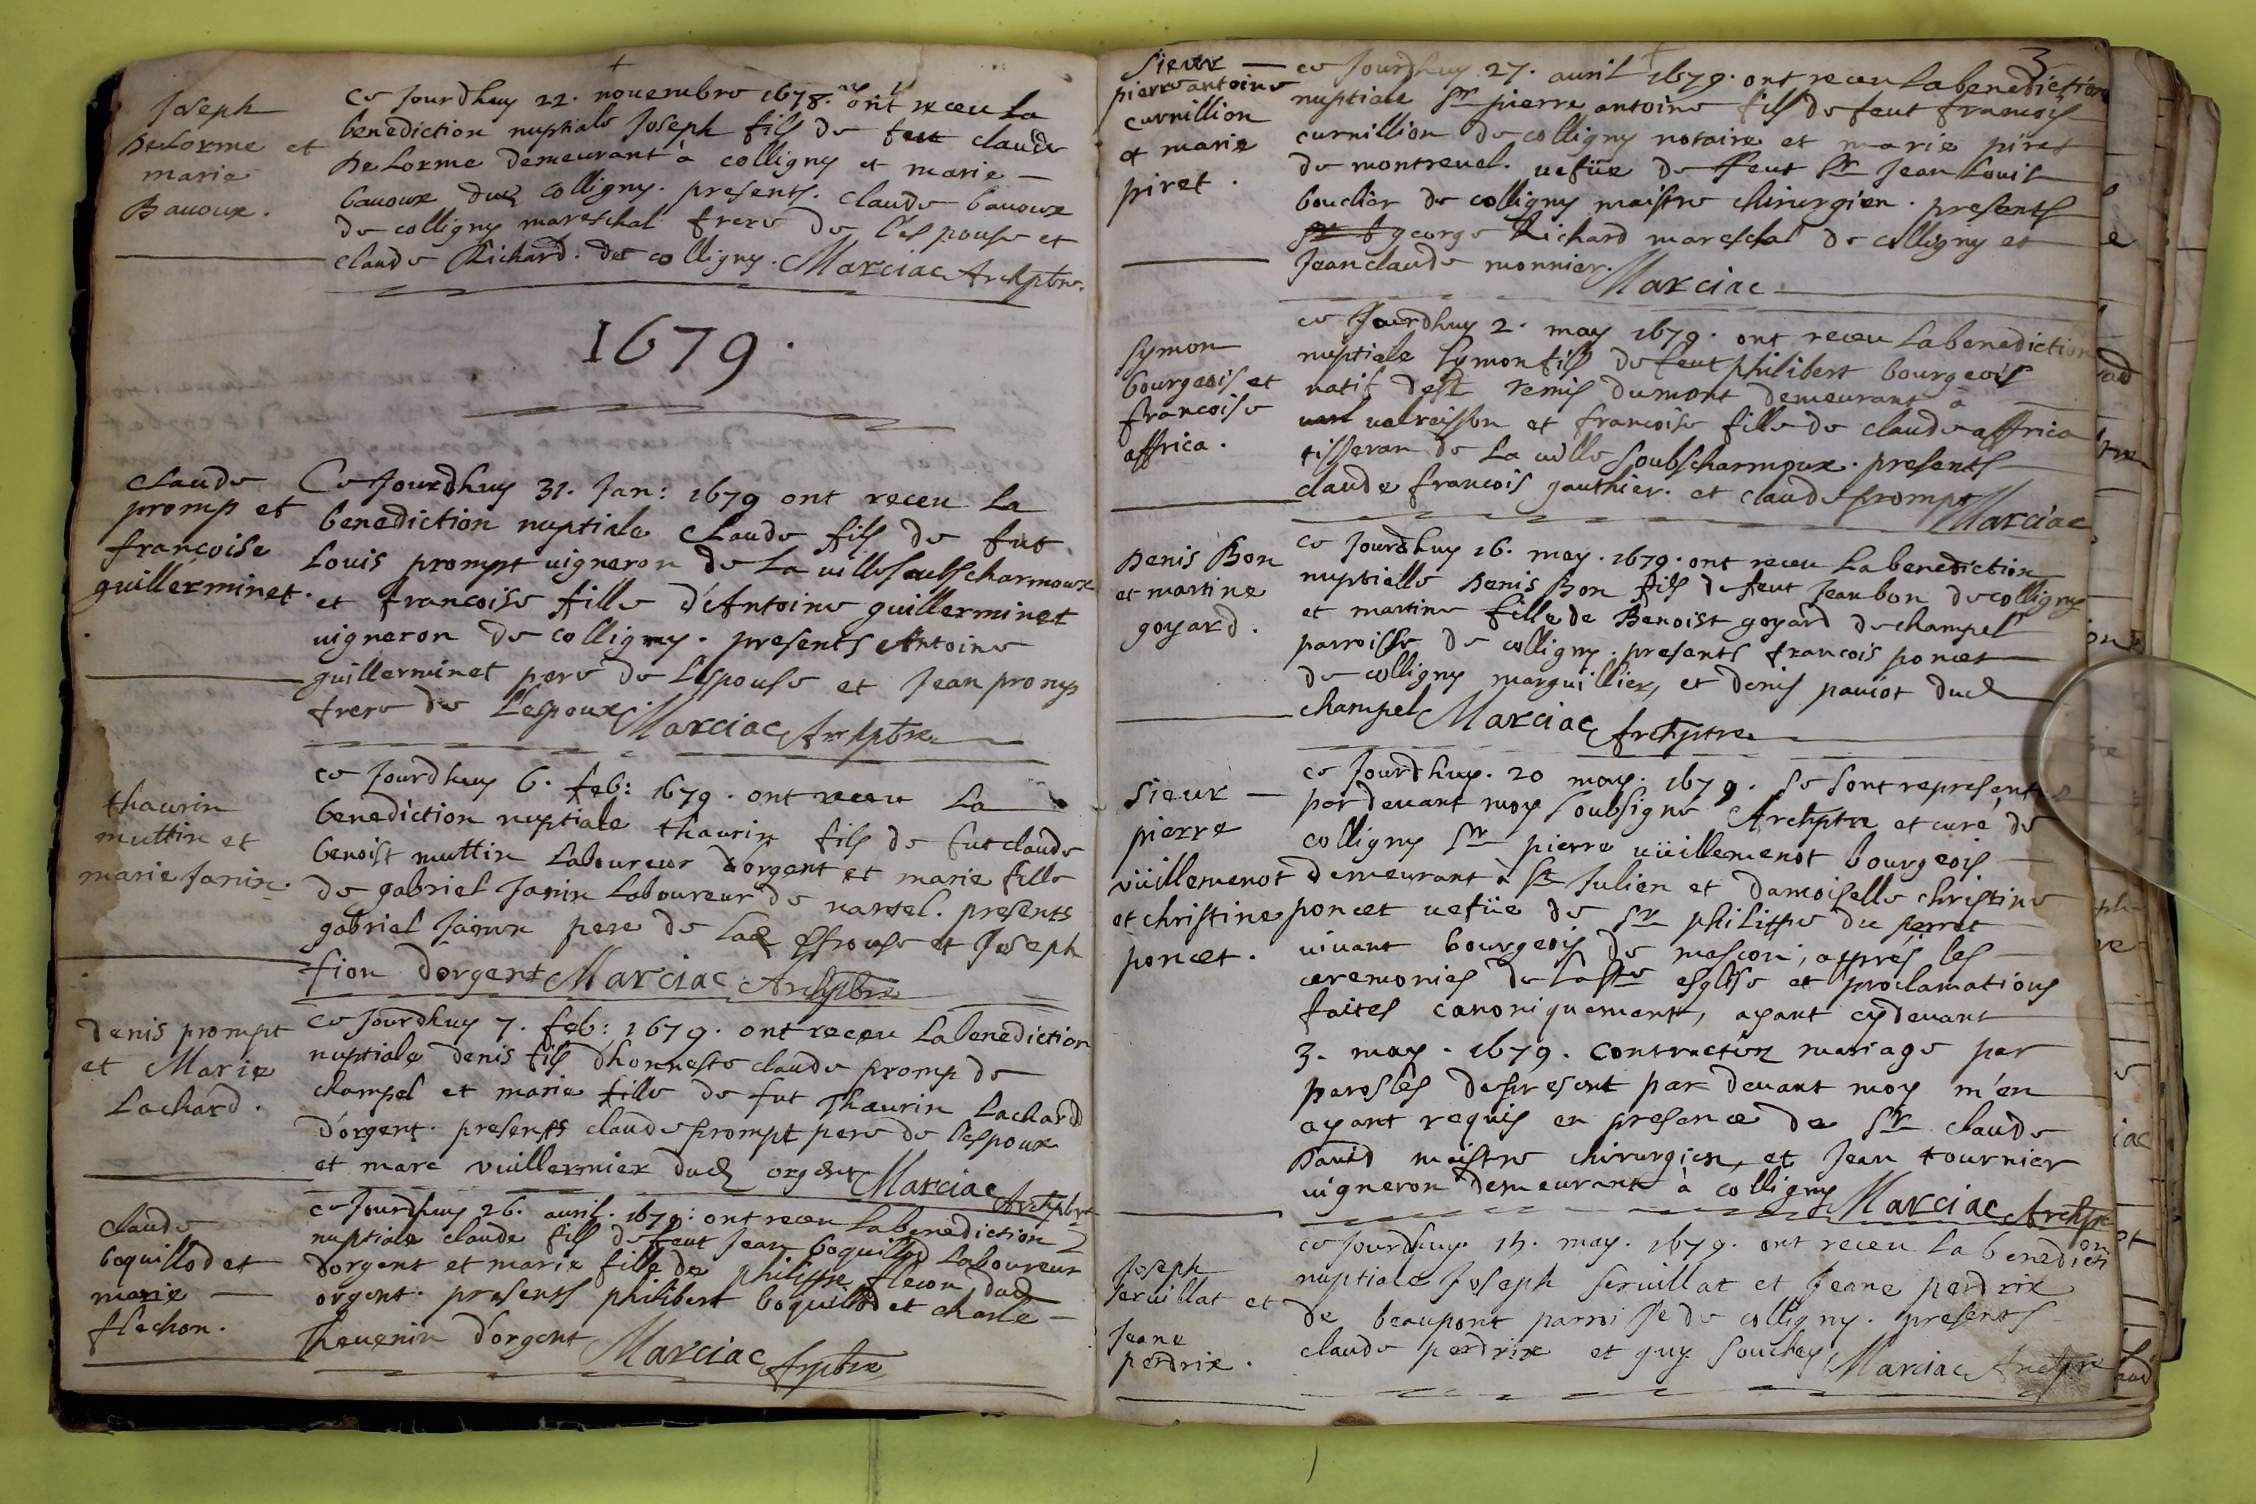 Joseph
DeLorme et
marie
Bauoux.
ce Jourdhuy 22. nouembre 1678. ont receu La
benediction nuptiale Joseph fils de feu claude
DeLorme demeurant à colligny et marie
bauoux dud colligny. presents. claude bauoux
de colligny mareschal frere de l'espouse et
claude Richard. de colligny. Marciac Archptre.
1679.
claude
promp et
françoise
guillerminet.
Ce Jourdhuy 31. Jan: 1679 ont receu La
benediction nuptiale Claude fils de fut
Louis prompt uigneron de La uille soubscharmoux
et francoise fille d'Antoine guillerminet
uigneron de colligny. presents Antoine
guillerminet pere de Lespouse et Jean promp
frere de Lespoux Marciac Archptre
thaurin
muttin et
marie Janin.
ce Jourdhuy 6. feb: 1679. ont receu La
benediction nuptiale thaurin fils de fut claude
benoist muttin Laboureur dorgent et marie fille
de gabriel Janin Laboureur de nantel. presents
gabriel Janin pere de Lad espouse et Joseph
fion dorgent Marciac Archptre
Denis prompt
et Marie
Lachard.
ce Jourdhuy 7. feb: 1679. ont receu La benediction
nuptiale denis fils dhonneste claude promp de
champel et marie fille de fut Thaurin Lachard
d'orgent. presents claude prompt pere de l'espoux
et marc vuillermier dud orgent Marciac Archptre
claude
boquillod et
marie
flechon.
ce Jourdhuy 26. auril. 1679: ont receu La benediction
nuptiale claude fils de feut Jean boquillod Laboureur
dorgent et marie fille de philippe flecon dud
orgent. presents philibert boquillod et charle
Thauenin d'orgent Marciac Arptre
3
Sieur
pierre antoine
curnillion
et marie
piret.
ce Jourdhuy 27. auril 1679. ont receu La benediction
nuptiale Sr pierre antoine fils de feut francois
curnillion de colligny notaire et marie piret
de montreuel. uefüe de feut Sr Jean Louis
bouclier de colligny maistre chirurgien. presents
george Richard mareschal de colligny et
Jean claude monnier. Marciac
Symon
bourgeois et
francoise
affrica.
ce Jourdhuy 2. may 1679. ont receu La benediction
nuptiale Symon fils de feut philibert bourgeois
natif dest remis dumont demeurant a
ualraisson et francoise fille de claude affrica
tisseran de La uille soubscharmoux. presents
claude francois gauthier. et claude prompt Marciac
Denis Bon
et martine
goyard.
ce Jourdhuy 16. may. 1679. ont receu La benediction
nuptialle Denis Bon fils de feut Jean bon de colligny
et martine fille de Benoist goyard de champel
parroisse de colligny. presents francois poncet
de colligny marguillier, et denis pauiot dud
champel Marciac Archptre
Sieur
pierre
vüillemenot
et christine
poncet.
ce Jourdhuy. 20 may. 1679. se sont represent
par deuant moy soubsigne Archptre et curé de
colligny Sr pierre uüillemenot bourgeois
demeurant à St Julien et damoiselle christine
poncet uefüe de Sr philippe du perret
uiuant bourgeois de mascon, appres les
ceremonies de La Ste esglise et proclamations
faites canoniquement, ayant cydeuant
3. may. 1679. contracté mariage par
parosles de present par deuant moy m'en
ayant requis en presence de Sr claude
Dauid maistre chirurgien, et Jean tournier
uigneron demeurant à colligny Marciac Archptre
Joseph
seruillat et
Jeane
perdrix.
ce Jourdhuy. 15. may. 1679. ont receu La benediction
nuptiale Joseph seruillat et Jeane perdrix
de beaupont parroisse de colligny. presents
claude perdrix et guy souchey Marciac Archptre